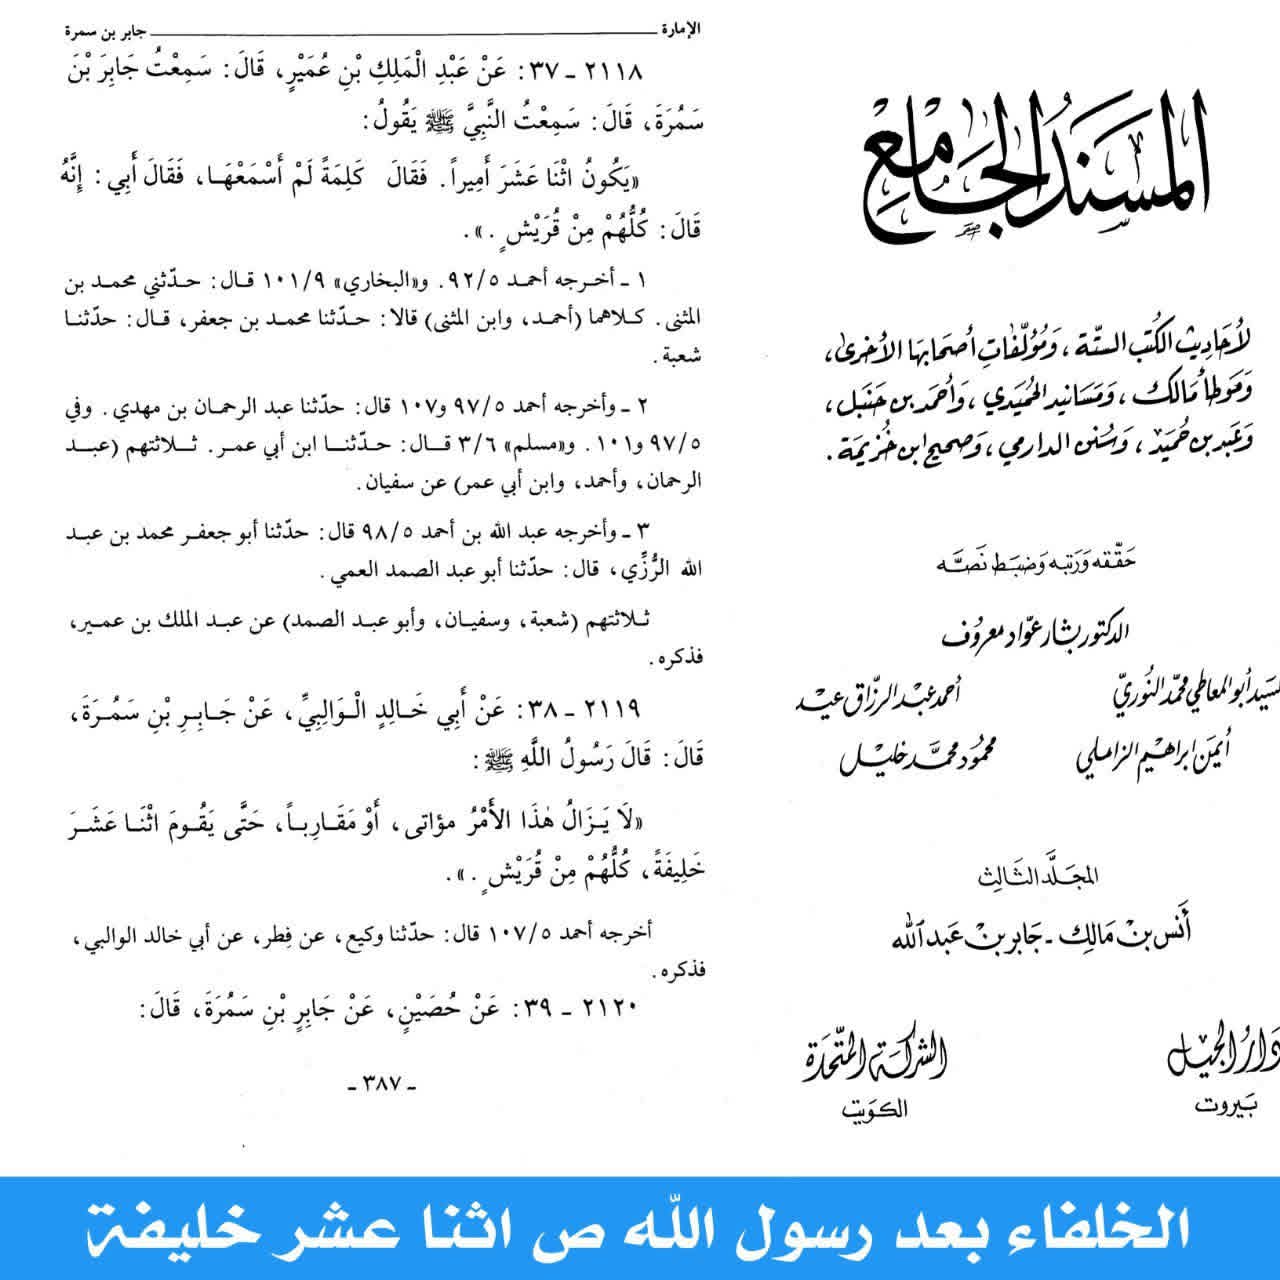 المسند الجامع
لأحاديث الكتب الستة، ومؤلفات أصحابها الأخرى،
وموطأ مالك، ومسانيد الحميدي، وأحمد بن حنبل،
وعبد بن حميد، وسنن الدارمي، وصحيح ابن خزيمة.
حققه ورتبه وضبط نصه
الدكتور بشار عواد معروف
السيد أبو المعاطي محمد النوري أحمد عبد الرزاق عيد
أيمن ابراهيم الزاملي محمود محمد خليل
المجلد الثالث
أنس بن مالك - جابر بن عبد الله
دار الجيل الشركة المتحدة
بيروت الكويت
الإمارة جابر بن سمرة
٢١١٨ - ٣٧: عَنْ عَبْدِ الْمَلِكِ بْنِ عُمَيْرٍ، قَالَ: سَمِعْتُ جَابِرَ بْنَ
سَمُرَةَ، قَالَ: سَمِعْتُ النَّبِيَّ ﷺ يَقُولُ:
«يَكُونُ اثْنَا عَشَرَ أَمِيراً. فَقَالَ كَلِمَةً لَمْ أَسْمَعْهَا، فَقَالَ أَبِي: إِنَّهُ
قَالَ: كُلُّهُمْ مِنْ قُرَيْشٍ.».
١ - أخرجه أحمد ٩٢/٥. و«البخاري» ١٠١/٩ قال: حدّثني محمد بن
المثنى. كلاهما (أحمد، وابن المثنى) قالا: حدّثنا محمد بن جعفر، قال: حدّثنا
شعبة.
٢ - وأخرجه أحمد ٩٧/٥ و١٠٧ قال: حدّثنا عبد الرحمان بن مهدي. وفي
٩٧/٥ و١٠١. و«مسلم» ٣/٦ قال: حدّثنا ابن أبي عمر. ثلاثتهم (عبد
الرحمان، وأحمد، وابن أبي عمر) عن سفيان.
٣ - وأخرجه عبد الله بن أحمد ٩٨/٥ قال: حدّثنا أبو جعفر محمد بن عبد
الله الرُّزِّي، قال: حدّثنا أبو عبد الصمد العمي.
ثلاثتهم (شعبة، وسفيان، وأبو عبد الصمد) عن عبد الملك بن عمير،
فذكره.
٢١١٩ - ٣٨: عَنْ أَبِي خَالِدٍ الْوَالِبِيِّ، عَنْ جَابِرِ بْنِ سَمُرَةَ،
قَالَ: قَالَ رَسُولُ اللَّهِ ﷺ:
«لَا يَزَالُ هٰذَا الأَمْرُ مؤاتى، أَوْ مَقَارِباً، حَتَّى يَقُومَ اثْنَا عَشَرَ
خَلِيفَةً، كُلُّهُمْ مِنْ قُرَيْشٍ.».
أخرجه أحمد ١٠٧/٥ قال: حدّثنا وكيع، عن فِطر، عن أبي خالد الوالبي،
فذكره.
٢١٢٠ - ٣٩: عَنْ حُصَيْنٍ، عَنْ جَابِرِ بْنِ سَمُرَةَ، قَالَ:
- ٣٨٧ -
الخلفاء بعد رسول الله ص اثنا عشر خليفة